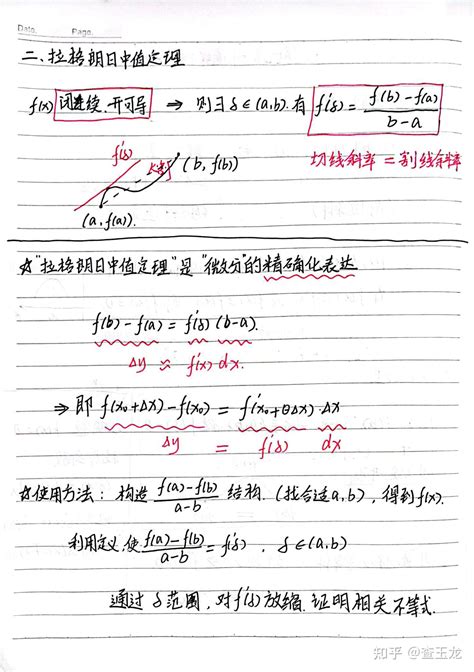 Date. Page.
二、拉格朗日中值定理
f(x) 闭连续.开可导 ⇒ 则∃δ∈(a,b).有 f'(δ) = (f(b)-f(a))/(b-a)
f'(δ) (b, f(b)) 切线斜率 = 割线斜率
(a, f(a)).
☆"拉格朗日中值定理"是"微分"的精确化表达
f(b)-f(a) = f'(δ)(b-a).
Δy ≈ f'(x)·dx.
⇒即 f(x₀+Δx)-f(x₀) = f'(x₀+θΔx)·Δx
Δy = f'(δ) dx
☆使用方法: 构造 (f(a)-f(b))/(a-b) 结构.(找合适a,b),得到f(x).
利用定义,使 (f(a)-f(b))/(a-b) = f'(δ) . δ∈(a,b)
通过δ范围,对f'(δ)放缩.证明相关不等式.
知乎 @查玉龙